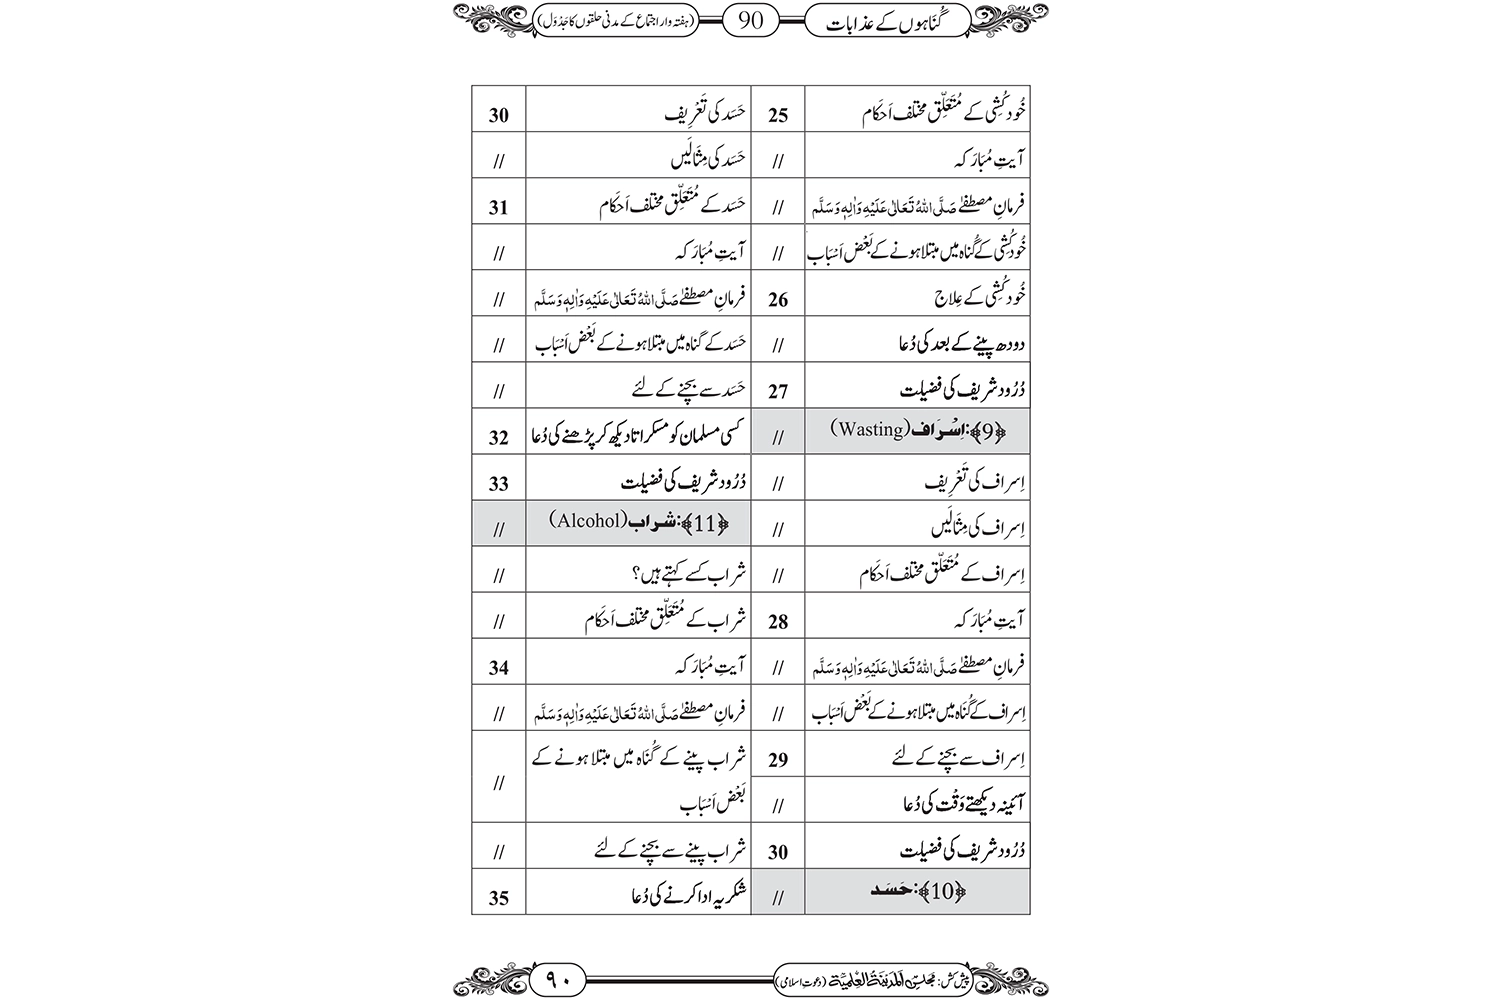 گُنَاہوں کے عذابات
90
(ہفتہ وار اجتماع کے مدنی حلقوں کا جَدْوَل)
خُود کُشِی کے مُتَعَلِّق مختلف اَحکَام 25
آیتِ مُبَارَکہ //
فرمانِ مصطفےٰ صَلَّی اللہُ تَعَالٰی عَلَیْہِ وَاٰلِہٖ وَسَلَّم //
خُود کُشِی کے گُناہ میں مبتلا ہونے کے بَعْض اَسْبَاب //
خُود کُشِی کے عِلاج 26
دودھ پینے کے بعد کی دُعا //
دُرُود شریف کی فضیلت 27
﴿9﴾: اِسْرَاف (Wasting) //
اِسراف کی تَعْرِیف //
اِسراف کی مِثَالَیں //
اِسراف کے مُتَعَلِّق مختلف اَحکَام //
آیتِ مُبَارَکہ 28
فرمانِ مصطفےٰ صَلَّی اللہُ تَعَالٰی عَلَیْہِ وَاٰلِہٖ وَسَلَّم //
اِسراف کے گُنَاہ میں مبتلا ہونے کے بَعْض اَسْبَاب //
اِسراف سے بچنے کے لئے 29
آئینہ دیکھتے وَقْت کی دُعا //
دُرُود شریف کی فضیلت 30
﴿10﴾: حَسَد //
حَسَد کی تَعْرِیف 30
حَسَد کی مِثَالَیں //
حَسَد کے مُتَعَلِّق مختلف اَحکَام 31
آیتِ مُبَارَکہ //
فرمانِ مصطفےٰ صَلَّی اللہُ تَعَالٰی عَلَیْہِ وَاٰلِہٖ وَسَلَّم //
حَسَد کے گناہ میں مبتلا ہونے کے بَعْض اَسْبَاب //
حَسَد سے بچنے کے لئے //
کسی مسلمان کو مسکراتا دیکھ کر پڑھنے کی دُعا 32
دُرُود شریف کی فضیلت 33
﴿11﴾: شراب (Alcohol) //
شراب کسے کہتے ہیں؟ //
شراب کے مُتَعَلِّق مختلف اَحکَام //
آیتِ مُبَارَکہ 34
فرمانِ مصطفےٰ صَلَّی اللہُ تَعَالٰی عَلَیْہِ وَاٰلِہٖ وَسَلَّم //
شراب پینے کے گُنَاہ میں مبتلا ہونے کے
بَعْض اَسْبَاب //
شراب پینے سے بچنے کے لئے //
شکریہ ادا کرنے کی دُعا 35
پیش کش: مجلس المدینۃ العلمیۃ (دعوتِ اسلامی)
۹۰